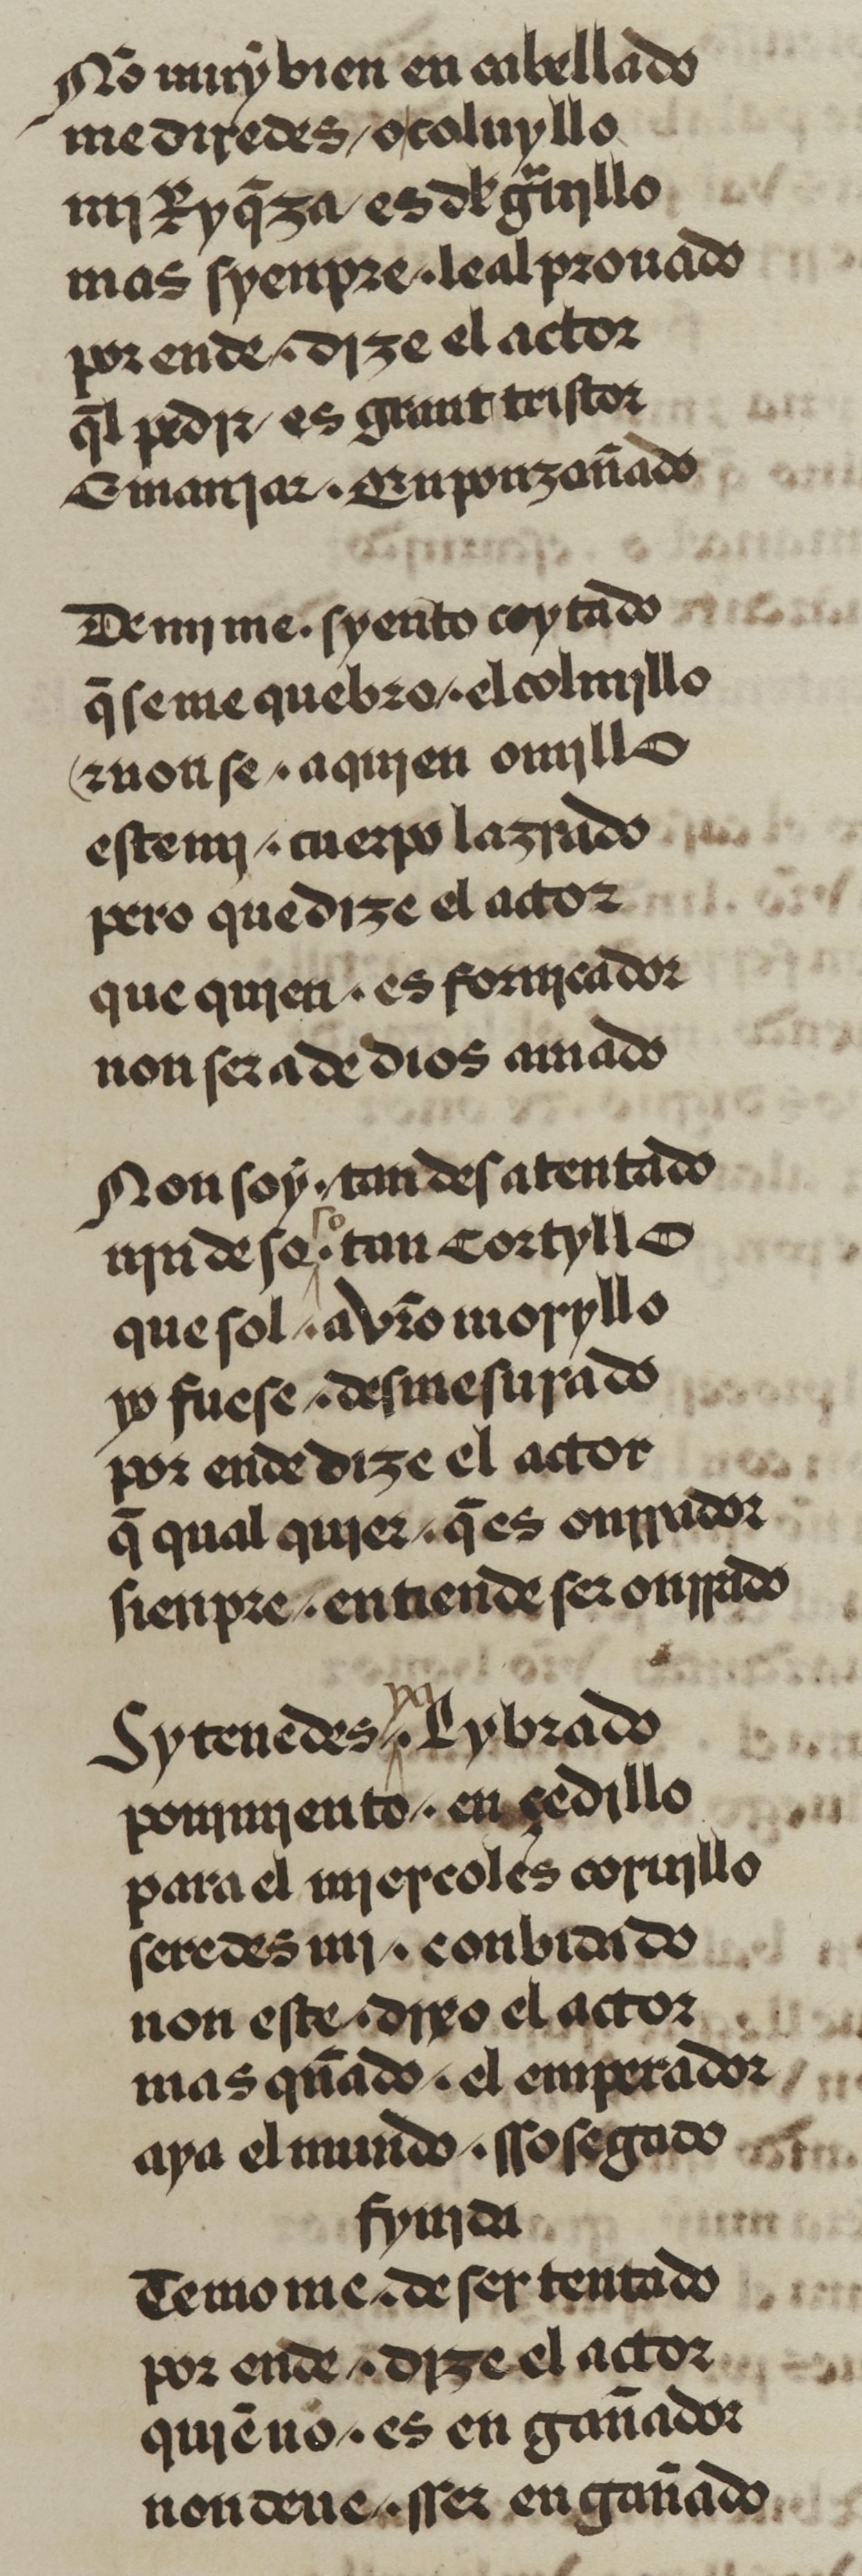 Nō muy bien en cabellado
me dixedes / o coluyllo
mi Ryq̄za / es dl gͣnillo
mas syenpre · leal prouado
por ende / · dize el actor
q̄l pedir / es grant tristor
E manjar · Enponzoñado
De mi me · syento coytado
q̄ se me quebro / · el colmillo
z non se / · a quien omillo
este mi / · cuerpo lazrado
pero que dize el actor
que quien / · es fornicador
non sera de dios amado
Non soy / · tan desatentado
nin de seso · tan Cortyllo
que sol / · a vr̄o moryllo
yo fuese / · desmesurado
por ende dize el actor
q̄ qual quier / · q̄ es onrrador
sienpre / · entiende ser onrrado
Sy tenedes / ya · Lybrado
ponimiento / · en çedillo
para el miercoles coruillo
seredes mi / · conbidado
non este / · dixo el actor
mas qn̄ado / · el emperador
aya el mundo / · ssosegado
fynida
Temo me / · de ser tentado
por ende / · dize el actor
quiē no / · es en gañador
non deue / · sser en gañado